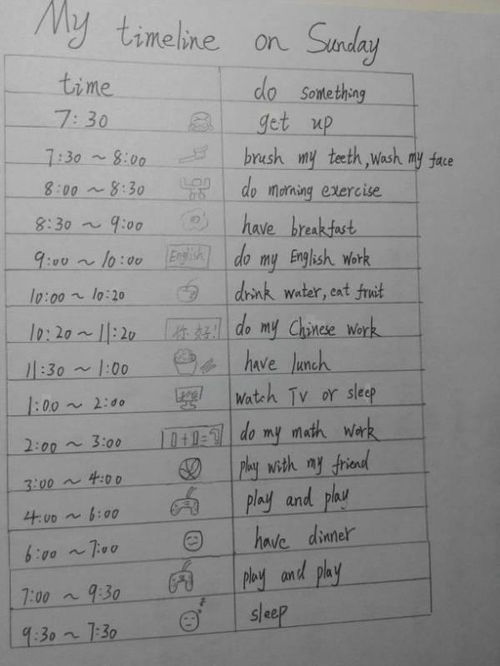 My timeline on Sunday
time do something
7:30 get up
7:30 ~ 8:00 brush my teeth, wash my face
8:00 ~ 8:30 do morning exercise
8:30 ~ 9:00 have breakfast
9:00 ~ 10:00 English do my English work
10:00 ~ 10:20 drink water, eat fruit
10:20 ~ 11:20 你好! do my Chinese work
11:30 ~ 1:00 have lunch
1:00 ~ 2:00 watch TV or sleep
2:00 ~ 3:00 10+10=? do my math work
3:00 ~ 4:00 play with my friend
4:00 ~ 6:00 play and play
6:00 ~ 7:00 have dinner
7:00 ~ 9:30 play and play
9:30 ~ 7:30 sleep